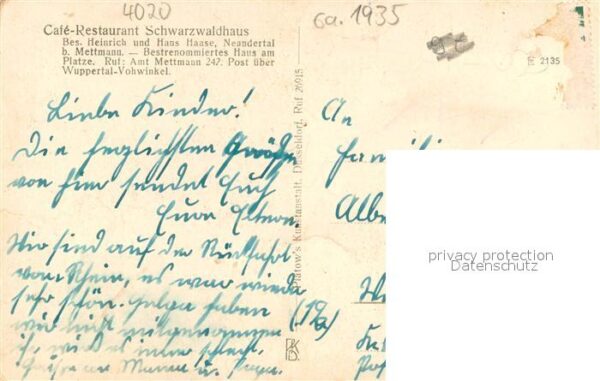 4020
ca. 1935
Café-Restaurant Schwarzwaldhaus
Bes. Heinrich und Hans Haase, Neandertal
b. Mettmann. — Bestrenommiertes Haus am
Platze. Ruf: Amt Mettmann 247. Post über
Wuppertal-Vohwinkel.
E 2135
Liebe Kinder!
Die herzlichsten Grüße
von hier sendet Euch
Eure Eltern
Wir sind auf der Rückfahrt
vom Rhein, es war wieder
sehr schön. Helga haben
wir nicht mitgenommen
ihr wird es immer schlecht.
Mama u. Papa.
Platow's Kunstanstalt, Düsseldorf, Ruf 26915
An
Familie
Albe
privacy protection
Datenschutz